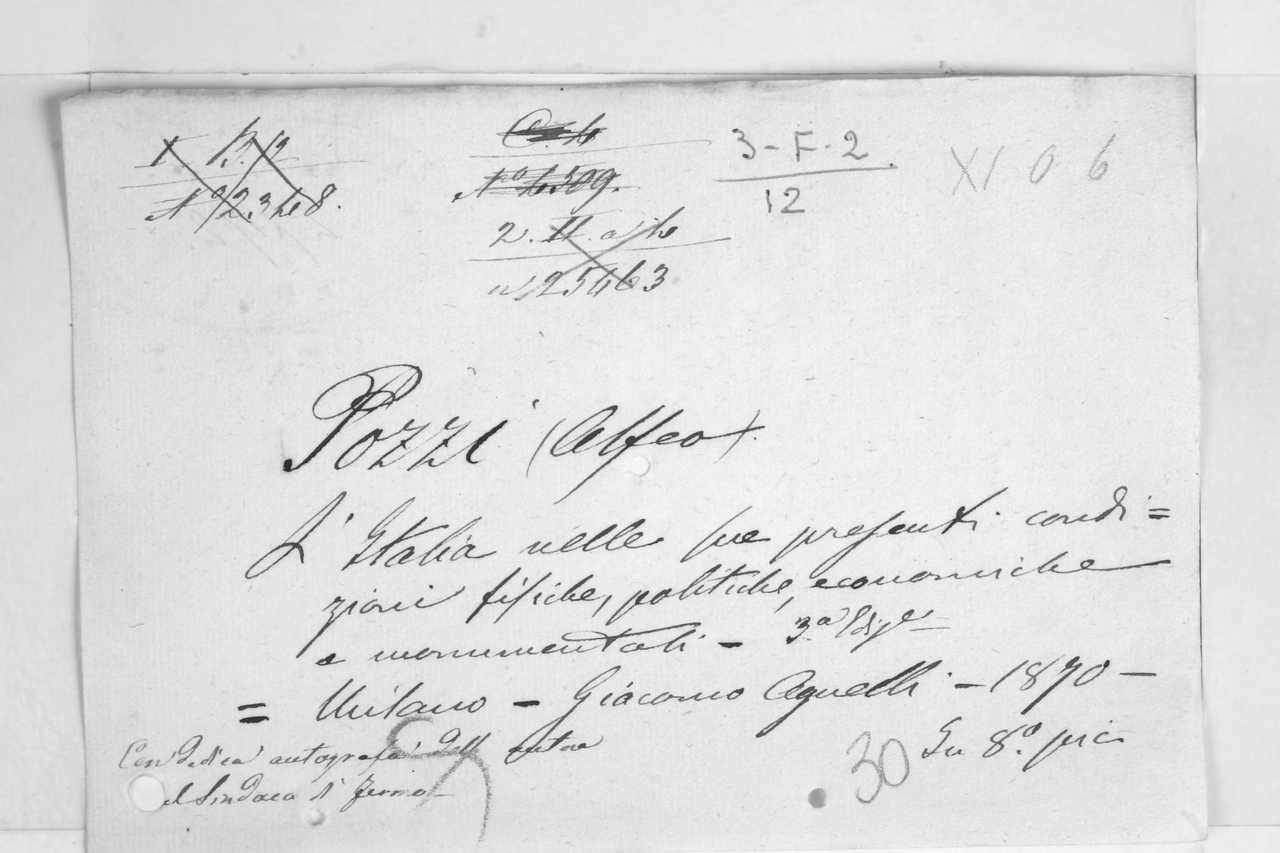 N° 2348.
N° 4509.
3-F.2
12
XI 0 6
n° 25463
Pozzi (Alfeo).
L'Italia nelle sue presenti condi=
zioni fisiche, politiche, economiche
e monumentali - 3.a Ediz.e
= Milano - Giacomo Agnelli - 1870 -
In 8.° pic.
30
Con dedica autografa dell'autore
al Sindaco di Fermo